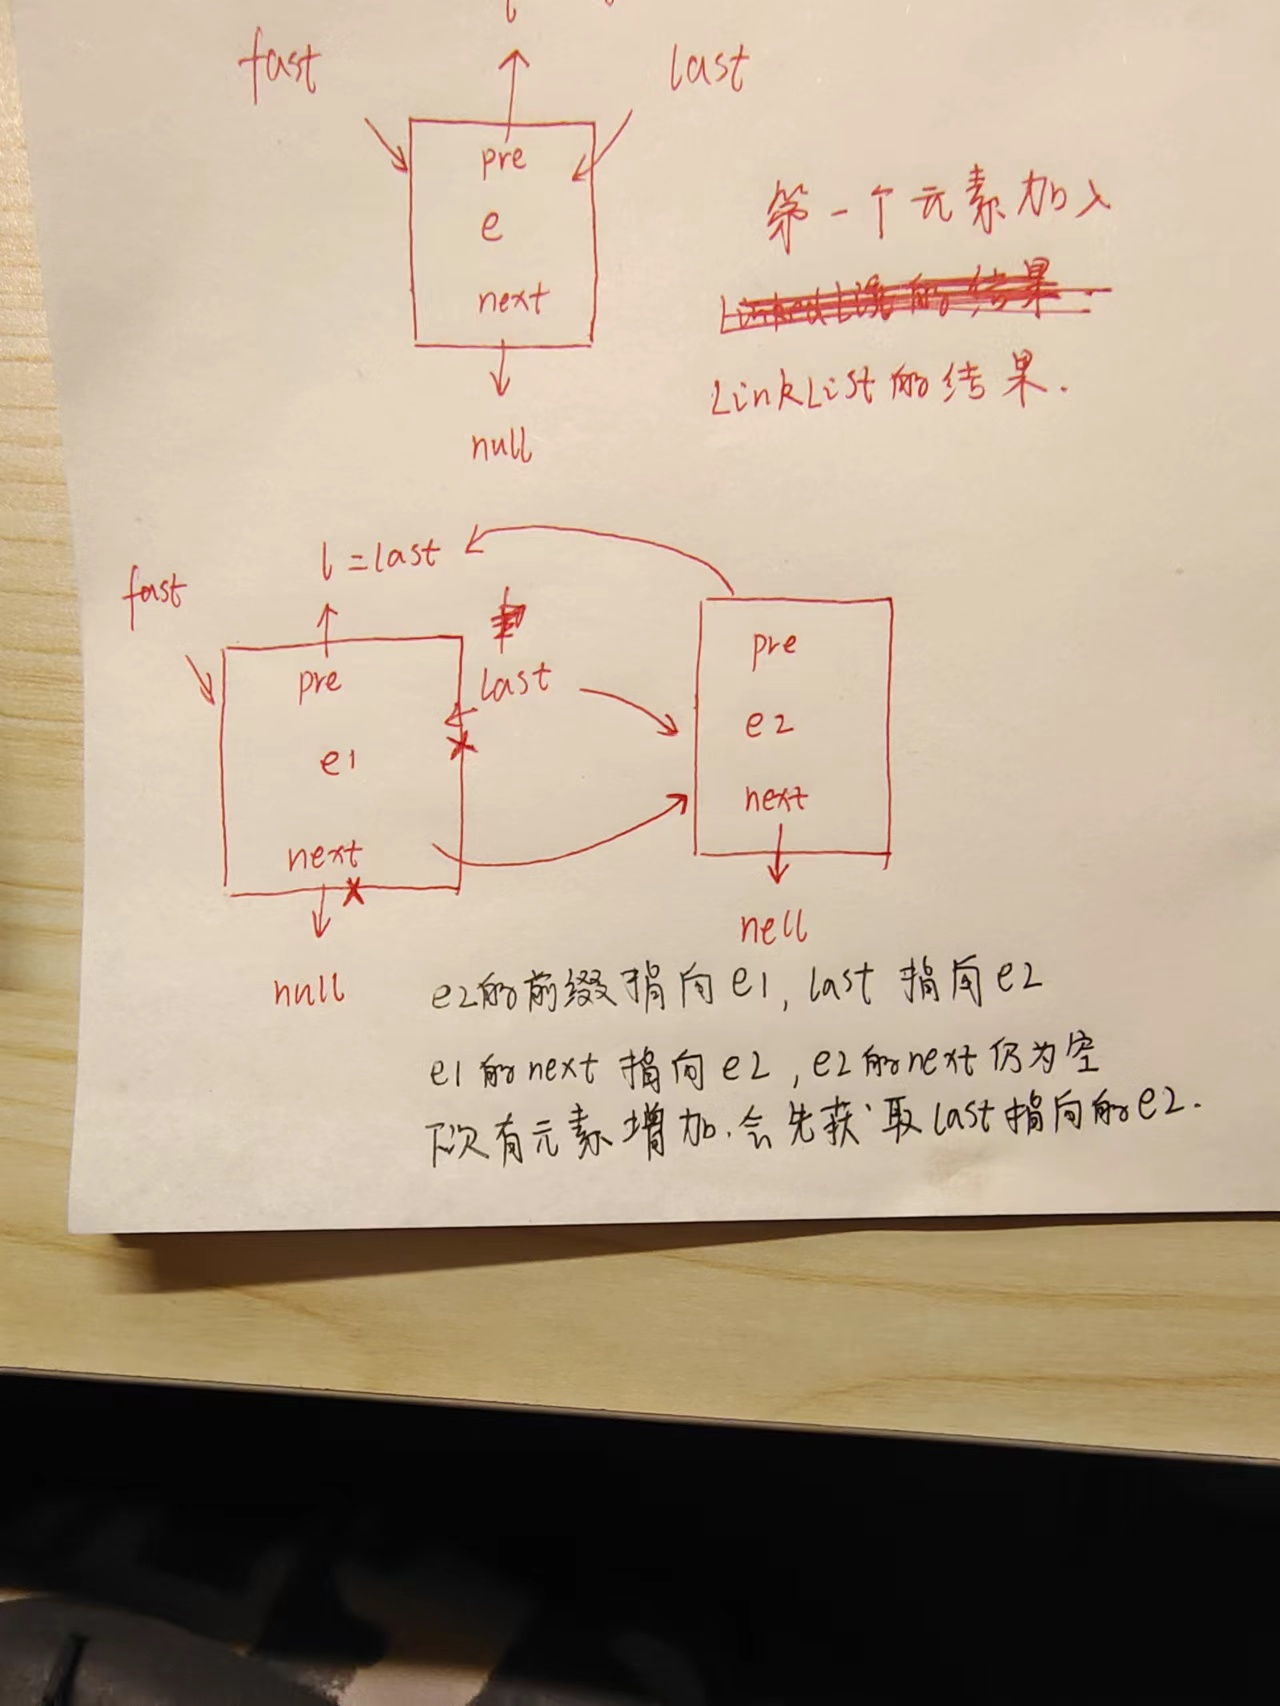 fast
last
pre
e
next
null
第一个元素加入
LinkList的结果.
l=last
fast
pre
last
e1
next
null
pre
e2
next
nell
e2的前缀指向e1, last 指向e2
e1的next 指向e2, e2的next仍为空
下次有元素增加.会先获取last指向的e2.